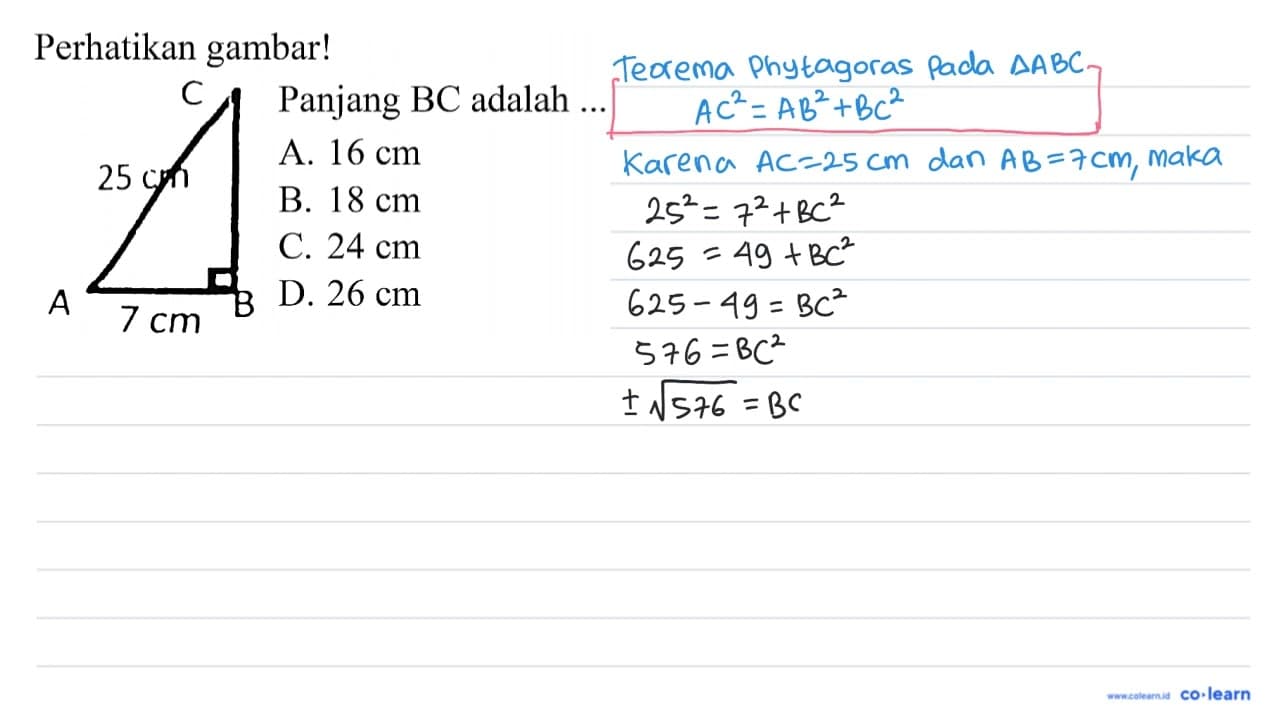 Perhatikan gambar!
C
25 cm
A
7 cm
B
Panjang BC adalah ...
A. 16 cm
B. 18 cm
C. 24 cm
D. 26 cm
Teorema Phytagoras Pada ΔABC
AC² = AB² + BC²
Karena AC = 25 cm dan AB = 7 cm, maka
25² = 7² + BC²
625 = 49 + BC²
625 - 49 = BC²
576 = BC²
± √576 = BC
www.colearn.id co·learn